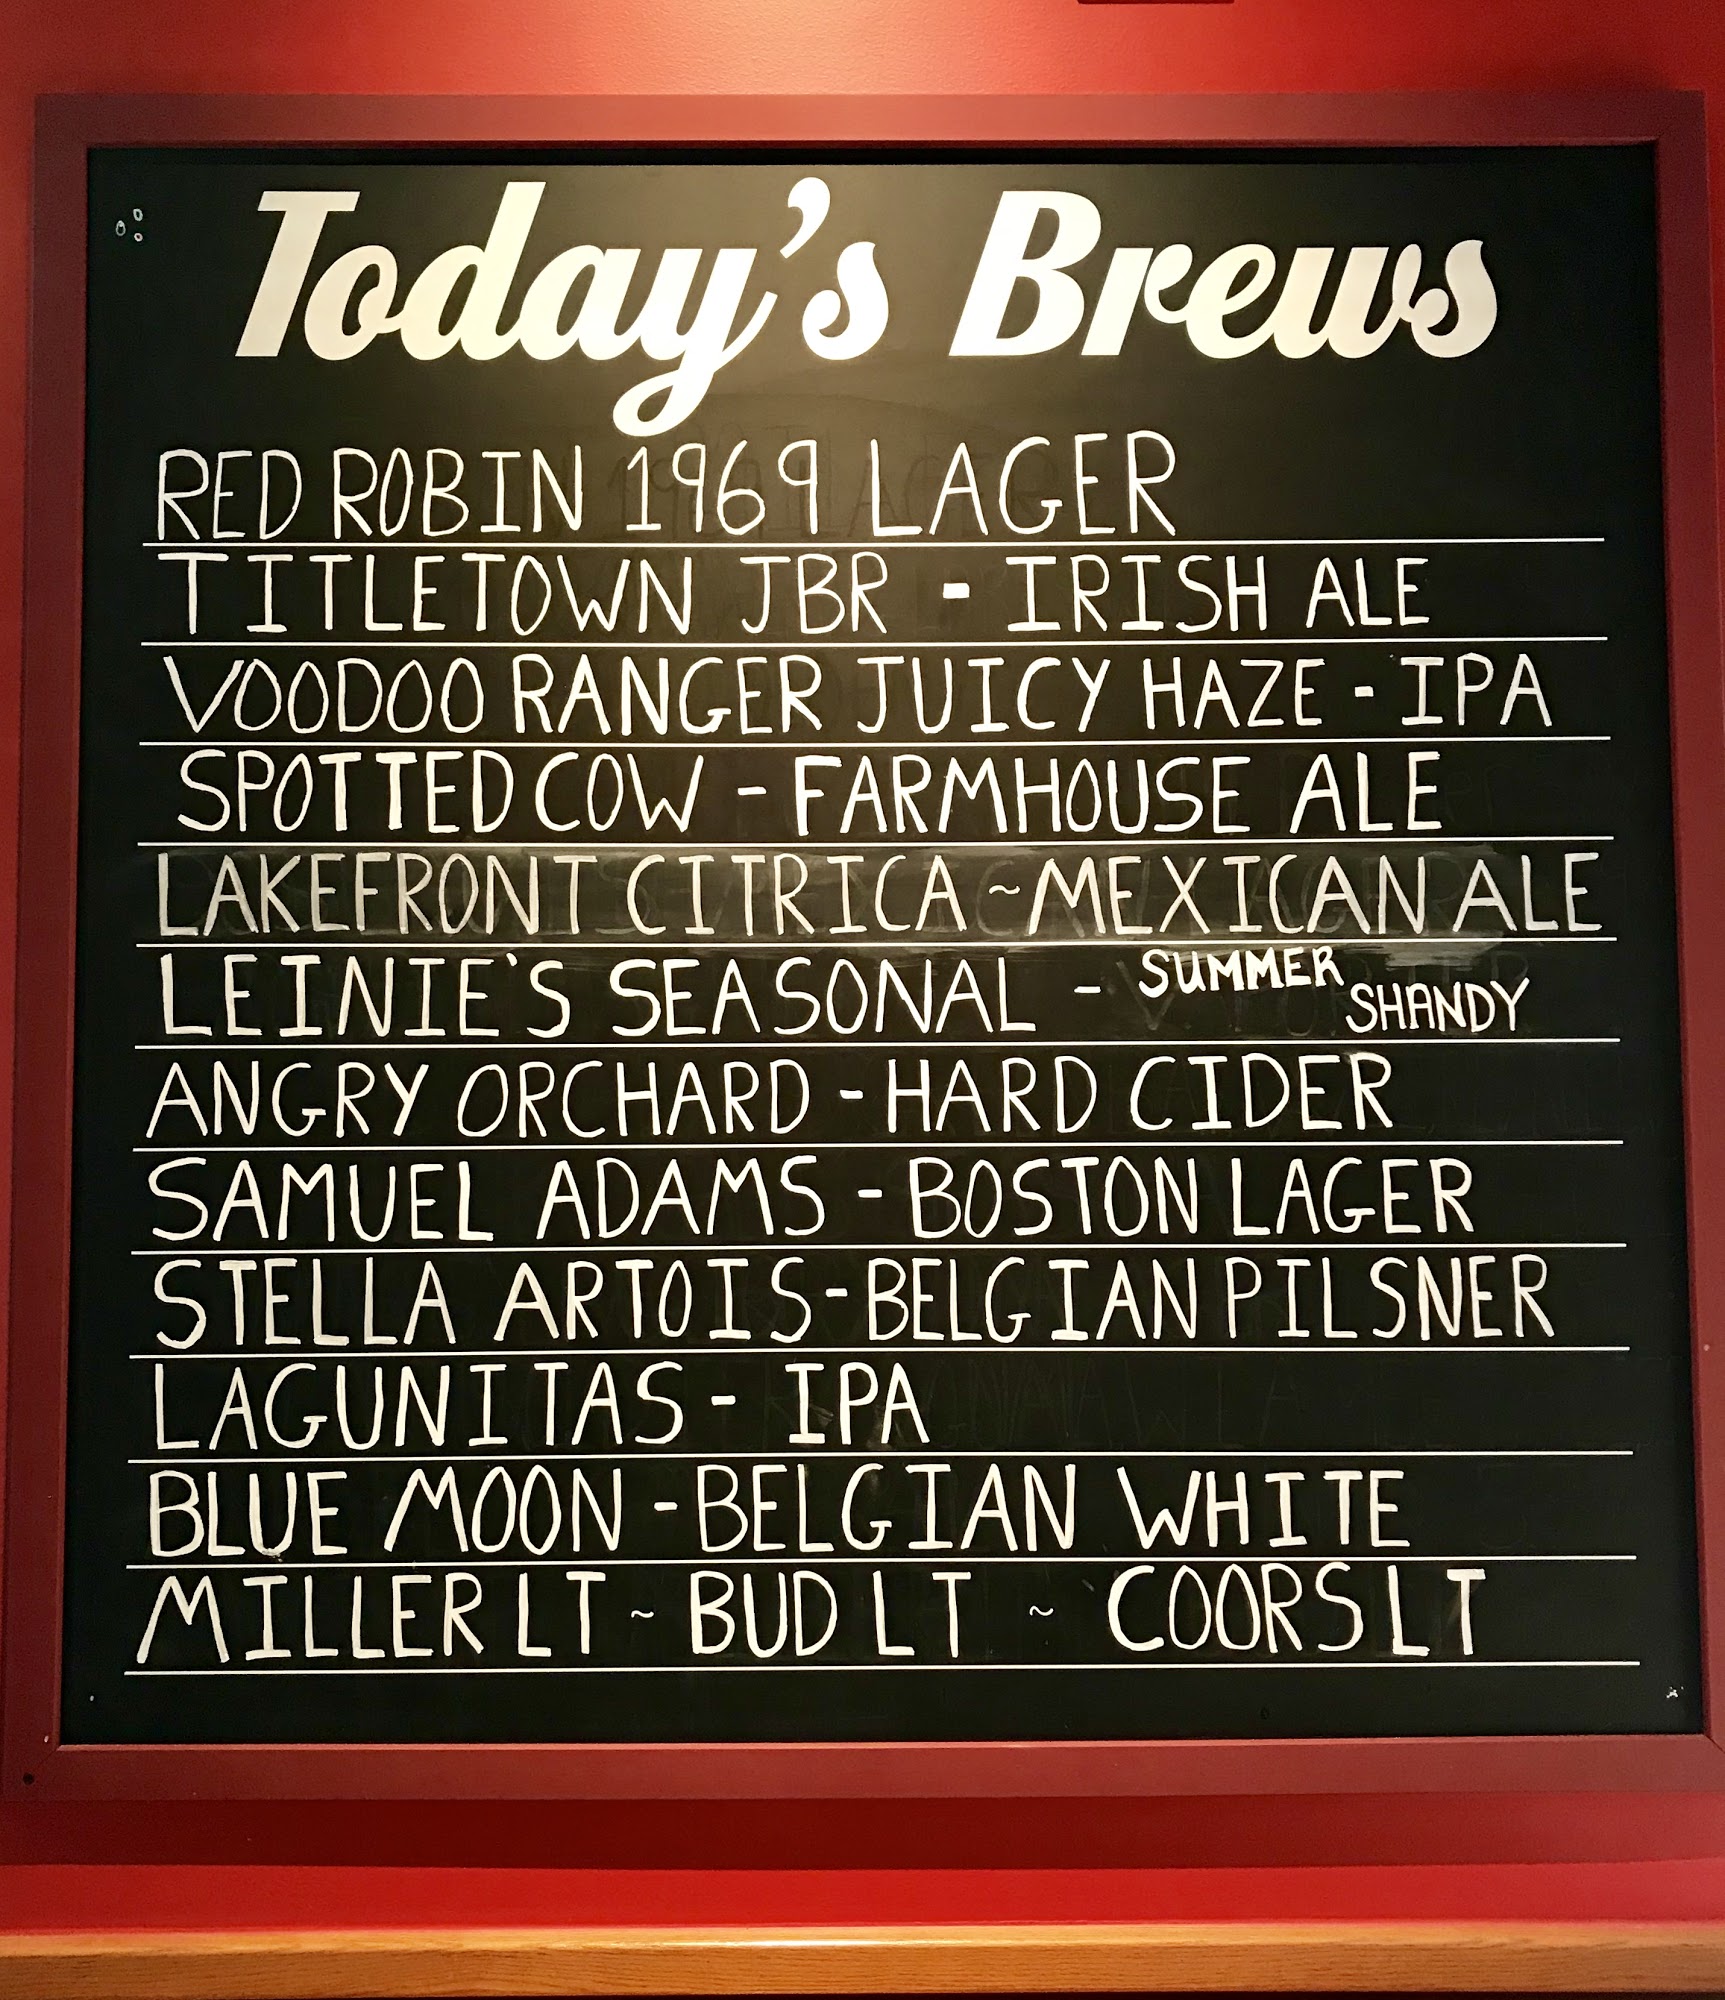 Today's Brews
RED ROBIN 1969 LAGER
TITLETOWN JBR - IRISH ALE
VOODOO RANGER JUICY HAZE - IPA
SPOTTED COW - FARMHOUSE ALE
LAKEFRONT CITRICA ~ MEXICAN ALE
LEINIE'S SEASONAL - SUMMER SHANDY
ANGRY ORCHARD - HARD CIDER
SAMUEL ADAMS - BOSTON LAGER
STELLA ARTOIS - BELGIAN PILSNER
LAGUNITAS - IPA
BLUE MOON - BELGIAN WHITE
MILLER LT ~ BUD LT ~ COORS LT